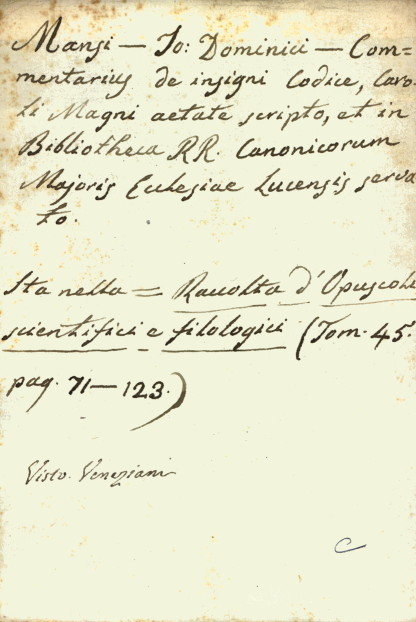 Mansi — Jo: Dominici — Com=
mentarius de insigni Codice, Caro-
li Magni aetate scripto, et in
Bibliotheca RR. Canonicorum
Majoris Ecclesiae Lucensis serva
to.
Sta nella = Raccolta d'Opuscoli
scientifici e filologici (Tom. 45.
pag. 71—123.)
Visto Veneziani
C